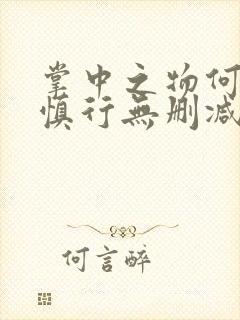 掌中之物何
慎行無删减
何言醉